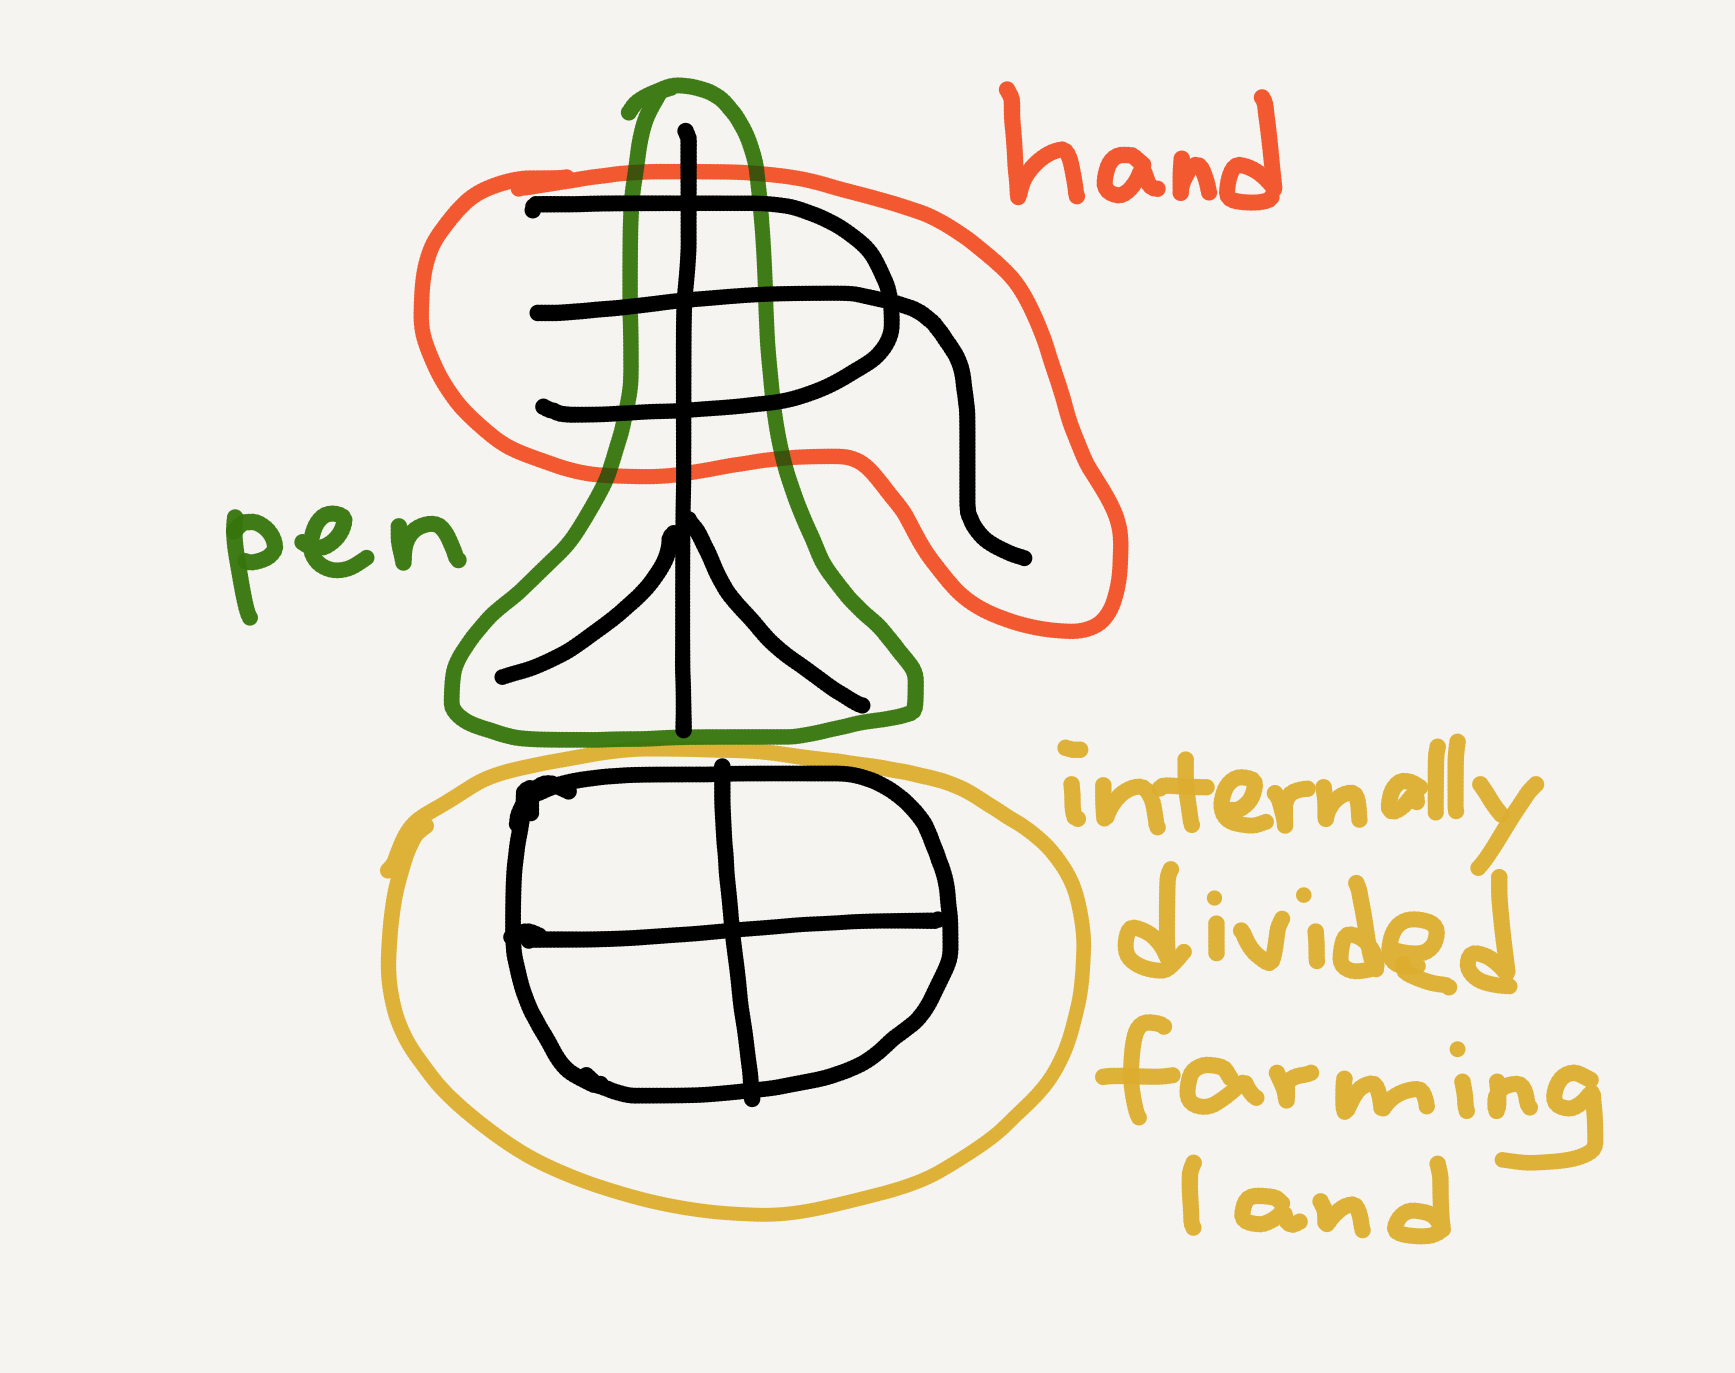 hand
pen
internally
divided
farming
land